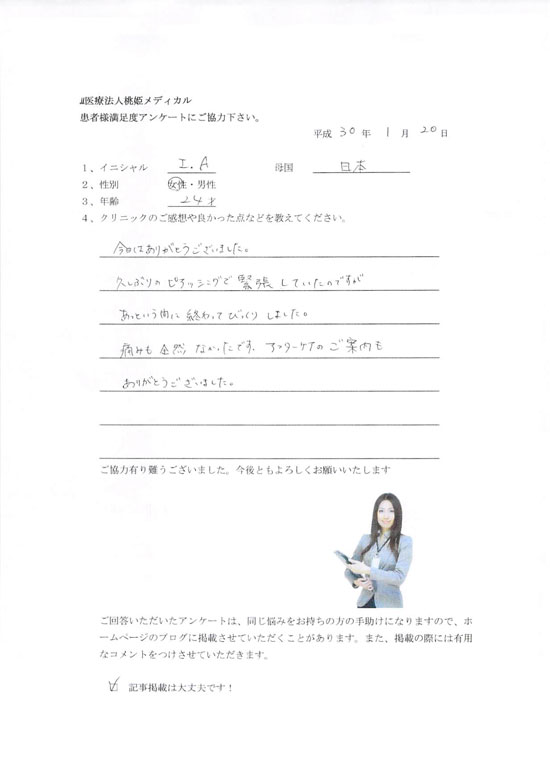 医療法人桃姫メディカル
患者様満足度アンケートにご協力下さい。
平成 30 年 1 月 20 日
1、イニシャル I.A 母国 日本
2、性別 女性・男性
3、年齢 24才
4、クリニックのご感想や良かった点などを教えてください。
今日はありがとうございました。
久しぶりのピアッシングで緊張していたのですが
あっという間に終わってびっくりしました。
痛みも全然なかったです。アフターケアのご案内も
ありがとうございました。
ご協力有り難うございました。今後ともよろしくお願いいたします
ご回答いただいたアンケートは、同じ悩みをお持ちの方の手助けになりますので、ホ
ームページのブログに掲載させていただくことがあります。また、掲載の際には有用
なコメントをつけさせていただきます。
記事掲載は大丈夫です！